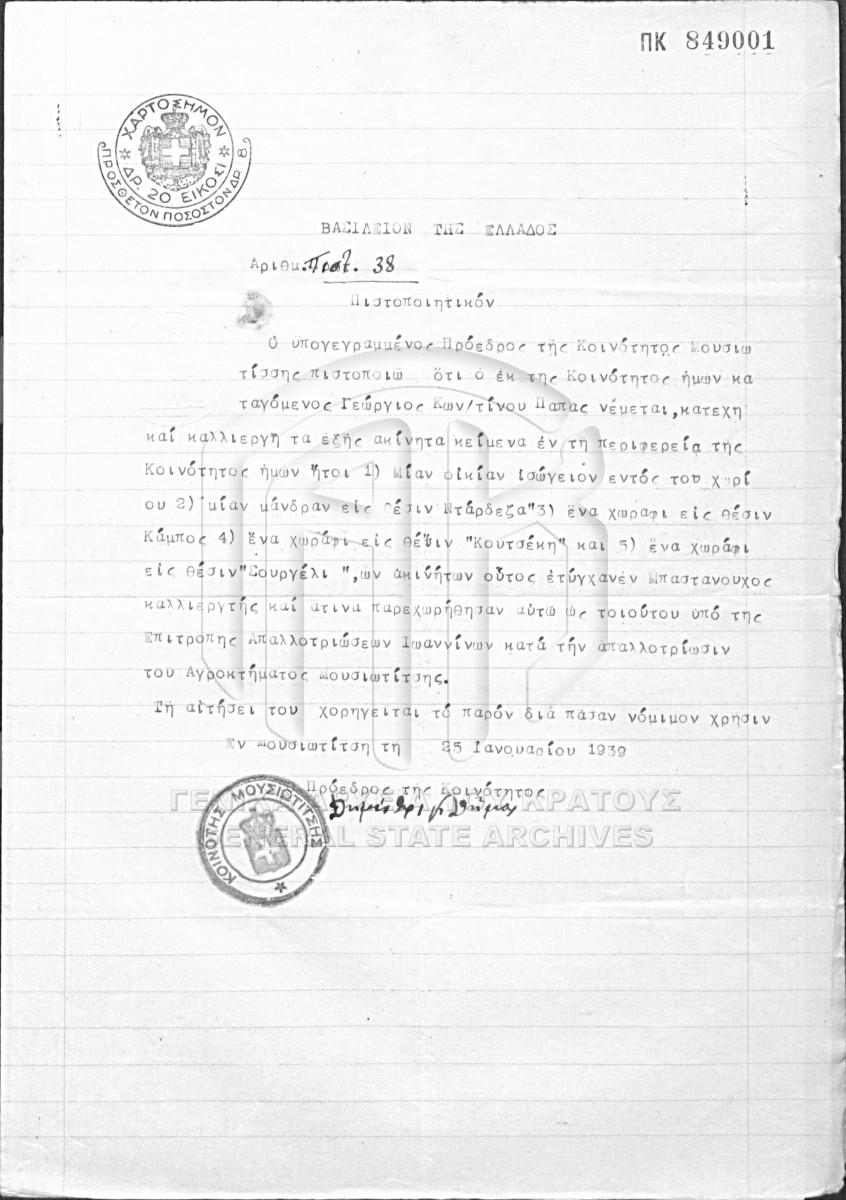 ΠΚ 849001
ΧΑΡΤΟΣΗΜΟΝ
ΔΡ. 20 ΕΙΚΟΣΙ
ΠΡΟΣΘΕΤΟΝ ΠΟΣΟΣΤΟΝ ΔΡ. 8
ΒΑΣΙΛΕΙΟΝ ΤΗΣ ΕΛΛΑΔΟΣ
Αριθμ. Πιστ. 38
Πιστοποιητικόν
Ο υπογεγραμμένος Πρόεδρος τής Κοινότητος Μουσιω
τίσσης πιστοποιώ ότι ο έκ της Κοινότητος ήμων κα
ταγόμενος Γεώργιος Κων/τίνου Παπας νέμεται,κατεχη
καί καλλιεργή τα έξής ακίνητα κείμενα έν τή περιφερεία της
Κοινότητος ήμων ήτοι 1) Μίαν οίκίαν ίσώγειον εντός του χωρί
ου 2) μίαν μάνδραν είς θέσιν Ντάρδεζα"3) ένα χωραφι είς θέσιν
Κάμπος 4) ένα χωράφι είς θέσιν "Κουτσέκη" και 5) ένα χωράφι
είς θέσιν"Σουργέλι ",ών ακινήτων ούτος έτύγχανεν Μπαστανουχος
καλλιεργτής καί άτινα παρεχωρήθησαν αύτώ ώς τοιούτου ύπό της
Επιτροπης Απαλλοτριώσεων Ιωαννίνων κατά τήν άπαλλοτρίωσιν
του Αγροκτήματος Μουσιωτίτσης.
Τή αίτήσει του χορηγειται τό παρόν διά πάσαν νόμιμον χρήσιν
Εν Μουσιωτίτση τή 25 Ιανουαρίου 1939
Πρόεδρος τής Κοινότητος
ΚΟΙΝΟΤΗΣ ΜΟΥΣΙΩΤΙΤΣΗΣ
ΓΕΝΙΚΑ ΑΡΧΕΙΑ ΤΟΥ ΚΡΑΤΟΥΣ
GENERAL STATE ARCHIVES